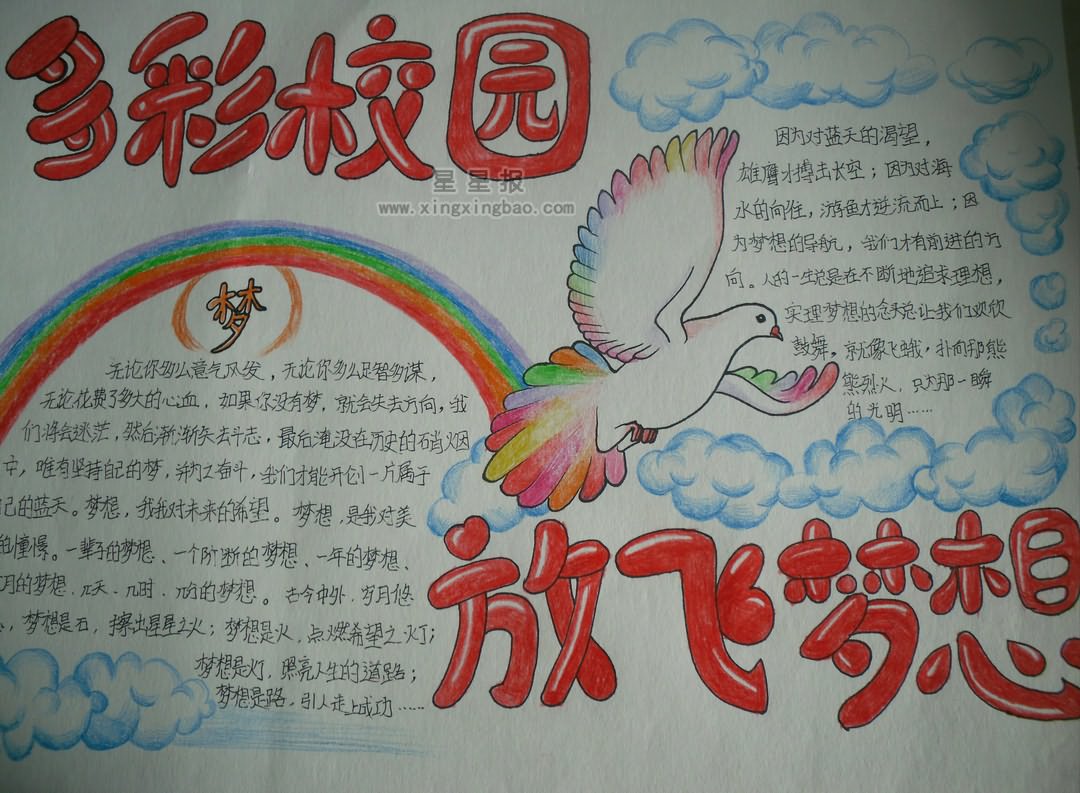 多彩校园
星星报
www.xingxingbao.com
因为对蓝天的渴望，
雄鹰才搏击长空；因为对海
水的向往，游鱼才逆流而上；因
为梦想的导航，我们才有前进的方
向。人的一生总是在不断地追求理想，
实理梦想的念头总让我们欢欣
鼓舞，就像飞蛾，扑向那熊
熊烈火，只为那一瞬
的光明……
梦
无论你多么意气风发，无论你多么足智多谋，
无论花费了多大的心血，如果你没有梦，就会失去方向，我
们将会迷茫，然后渐渐失去斗志，最后淹没在历史的硝烟
中，唯有坚持自己的梦，并为之奋斗，我们才能开创一片属于
己的蓝天。梦想，我我对未来的希望。梦想，是我对美
的憧憬。一辈子的梦想、一个阶断的梦想、一年的梦想、
月的梦想、几天、几时、几分的梦想。古今中外，岁月悠
梦想是石，擦出星星之火；梦想是火，点燃希望之灯；
梦想是灯，照亮人生的道路；
梦想是路，引人走上成功……
放飞梦想